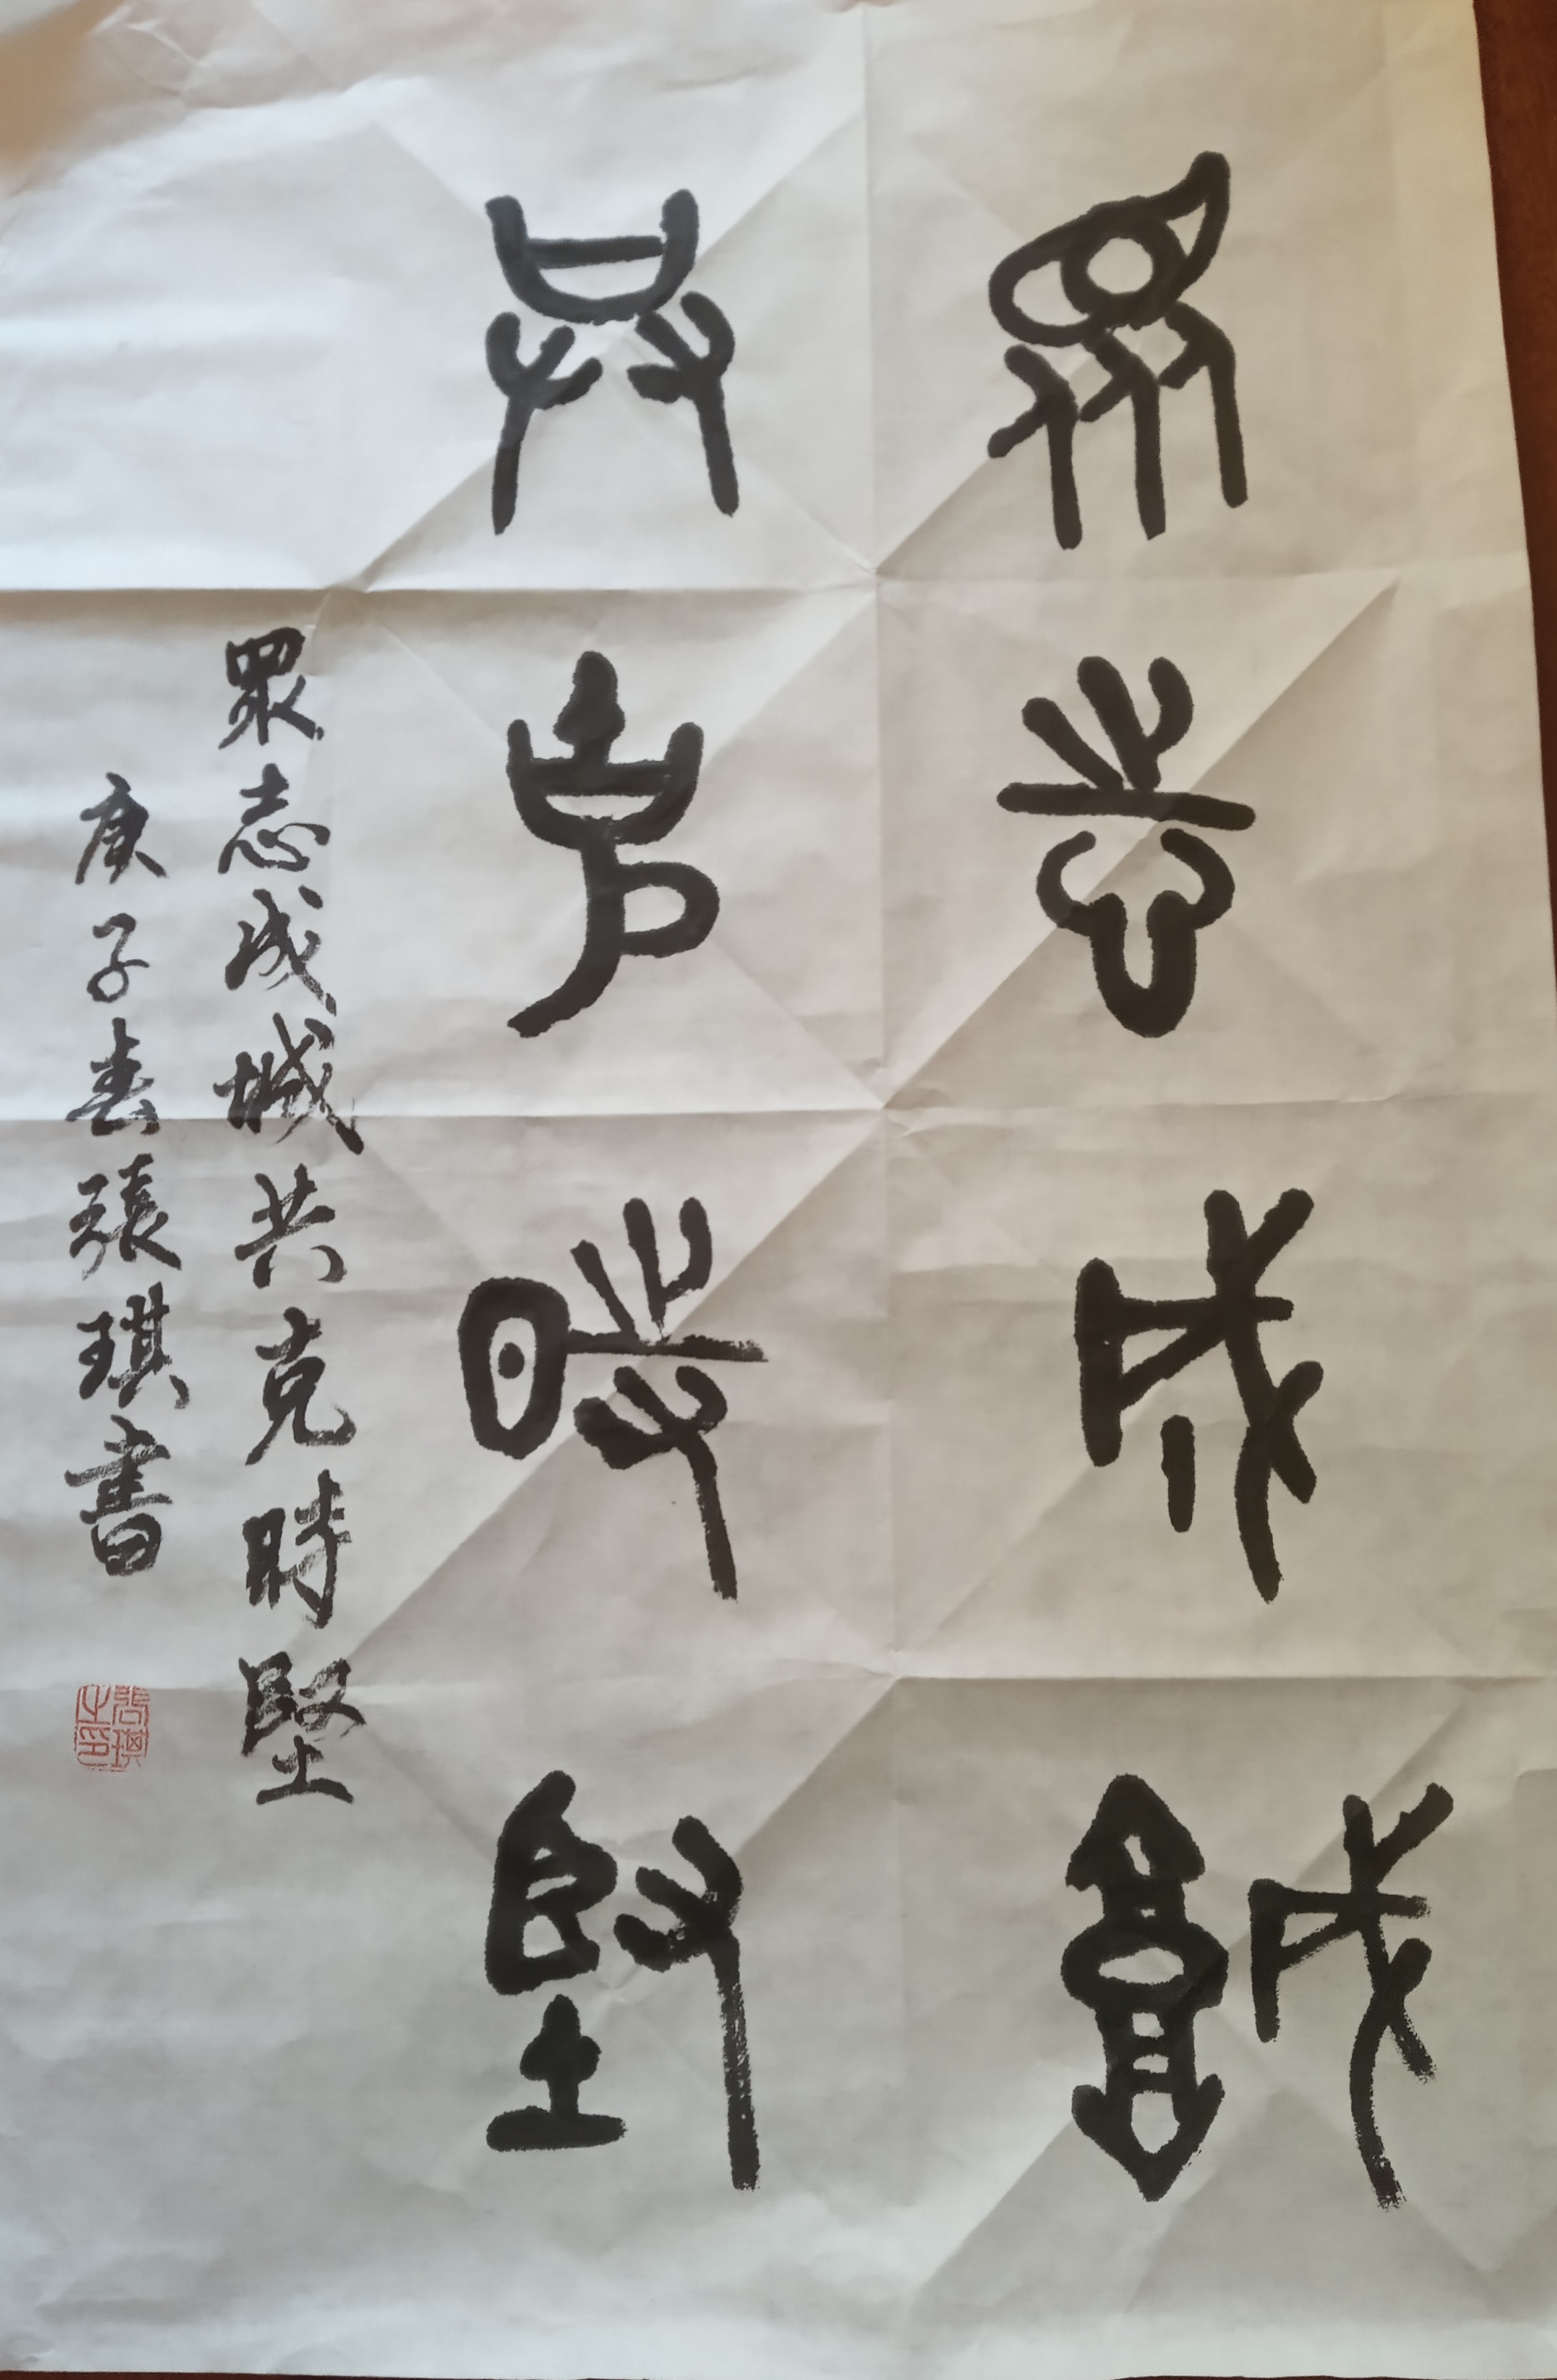 眾志成城
共克時堅
眾志成城共克時堅
庚子春張琪書
張琪之印